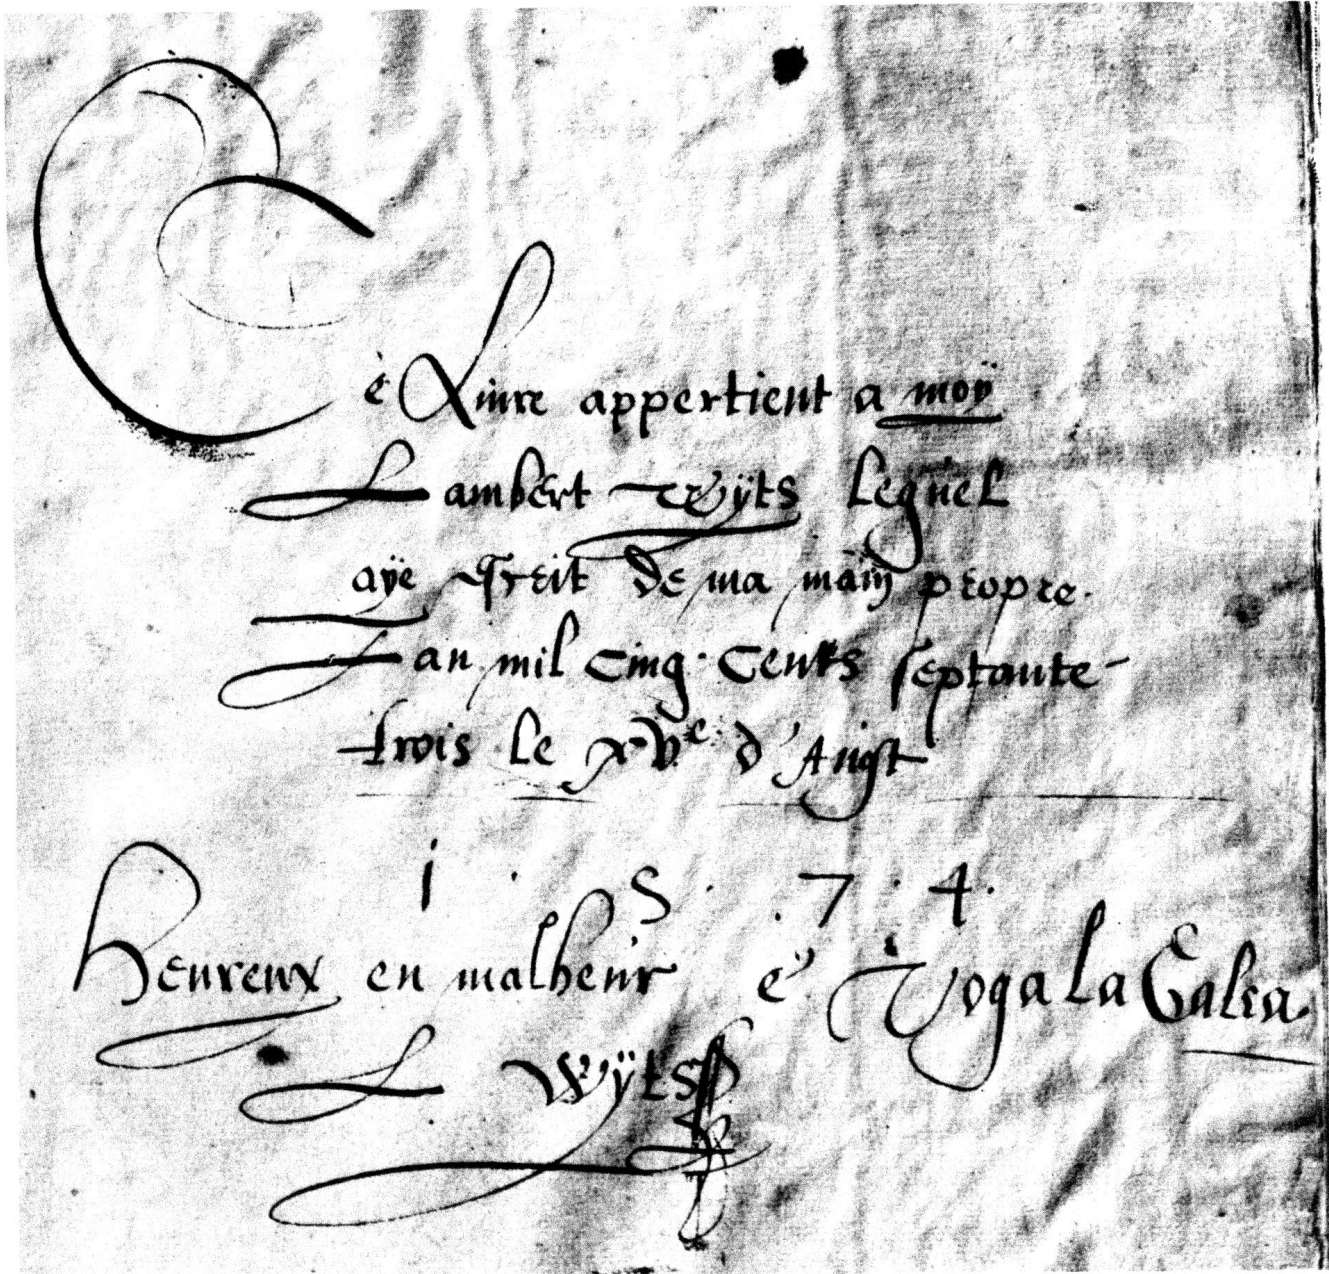 Ce Liure appertient a moÿ
Lambert Wÿts lequel
aÿe escreit de ma main propre.
Lan mil cinq · Cents septante-
trois le xv.e d'Augst
1 · 5 · 7 · 4 ·
Heureux en malheur e' Voga la Galea.
L Wÿts